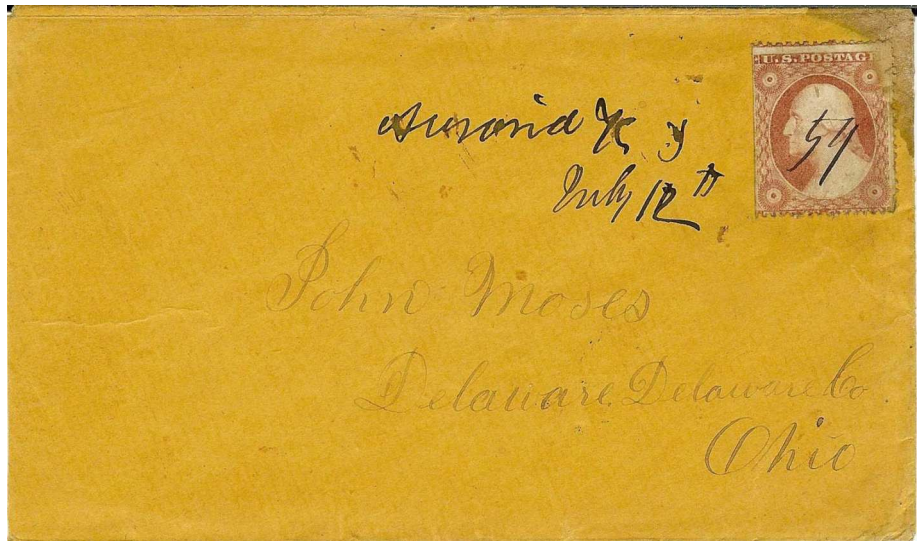 U.S. POSTAG
59
July 12th
John Moses
Delaware Delaware Co
Ohio